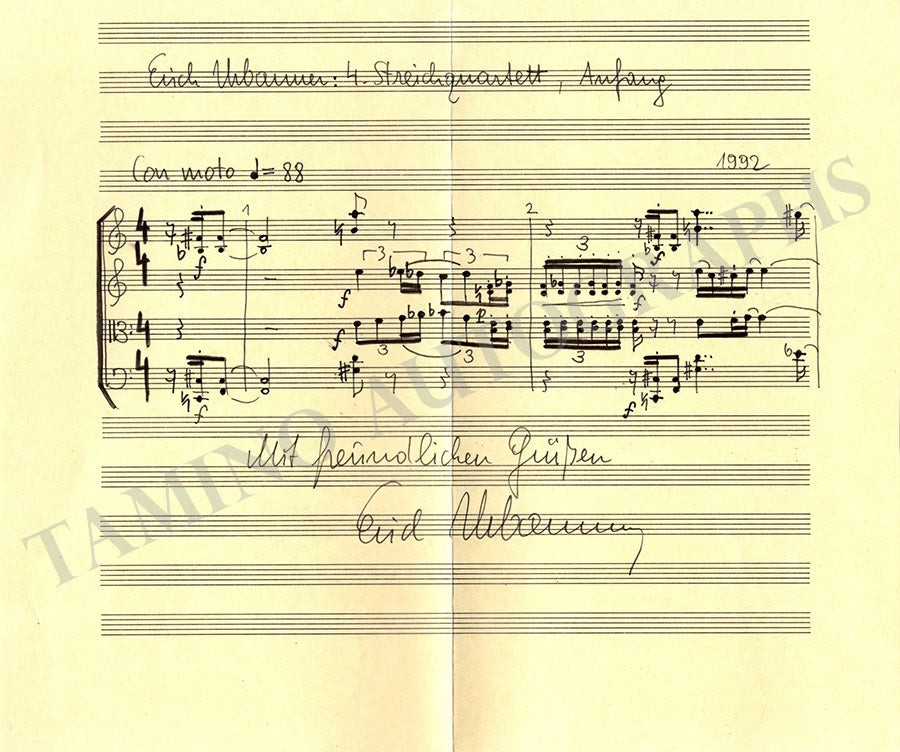 Erich Urbanner: 4. Streichquartett, Anfang
Con moto ♩= 88 1992
1 2
4 4 4 4
f f
3 3 3
f f
f 3 3 3
f f
Mit freundlichen Grüßen
Erich Urbanner
TAMINO AUTOGRAPHS